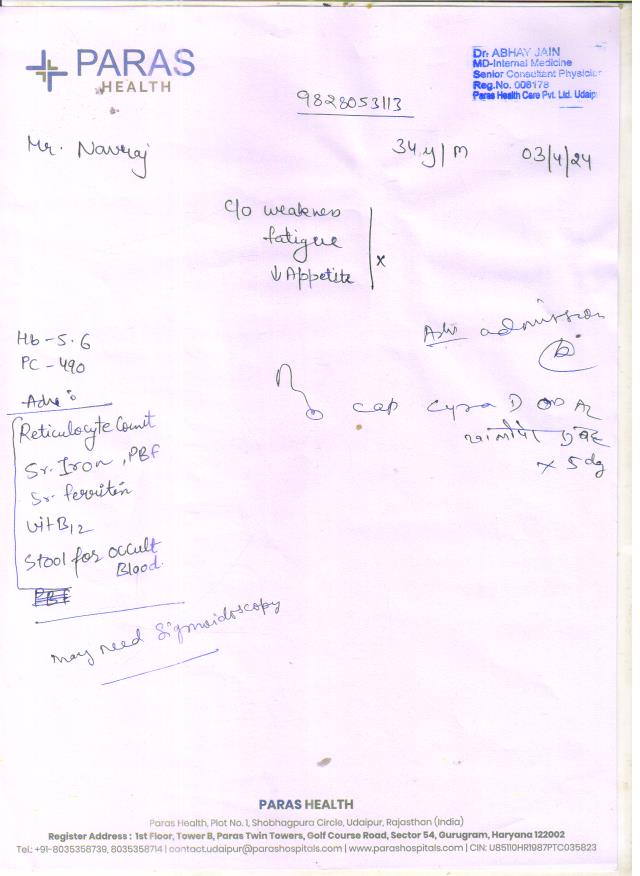 PARAS
HEALTH
Dr. ABHAY JAIN
MD-Internal Medicine
Senior Consultant Physician
Reg.No. 006178
Paras Health Care Pvt. Ltd. Udaip
9828053113
Mr. Navraj
34 y/M
03/4/24
c/o weakness
fatigue
↓ Appetite
x
Adv admission
Hb - 5.6
PC - 490
Adv :
Reticulocyte Count
Sr. Iron, PBF
Sr. ferritin
Vit B12
Stool for occult
Blood.
PBF
cap Cyra D OD
खाली पेट सुबह
x 5 dy
may need Sigmoidoscopy
PARAS HEALTH
Paras Health, Plot No. 1, Shobhagpura Circle, Udaipur, Rajasthan (India)
Register Address : 1st Floor, Tower B, Paras Twin Towers, Golf Course Road, Sector 54, Gurugram, Haryana 122002
Tel.: +91-8035358739, 8035358714 | contact.udaipur@parashospitals.com | www.parashospitals.com | CIN: U85110HR1987PTC035823